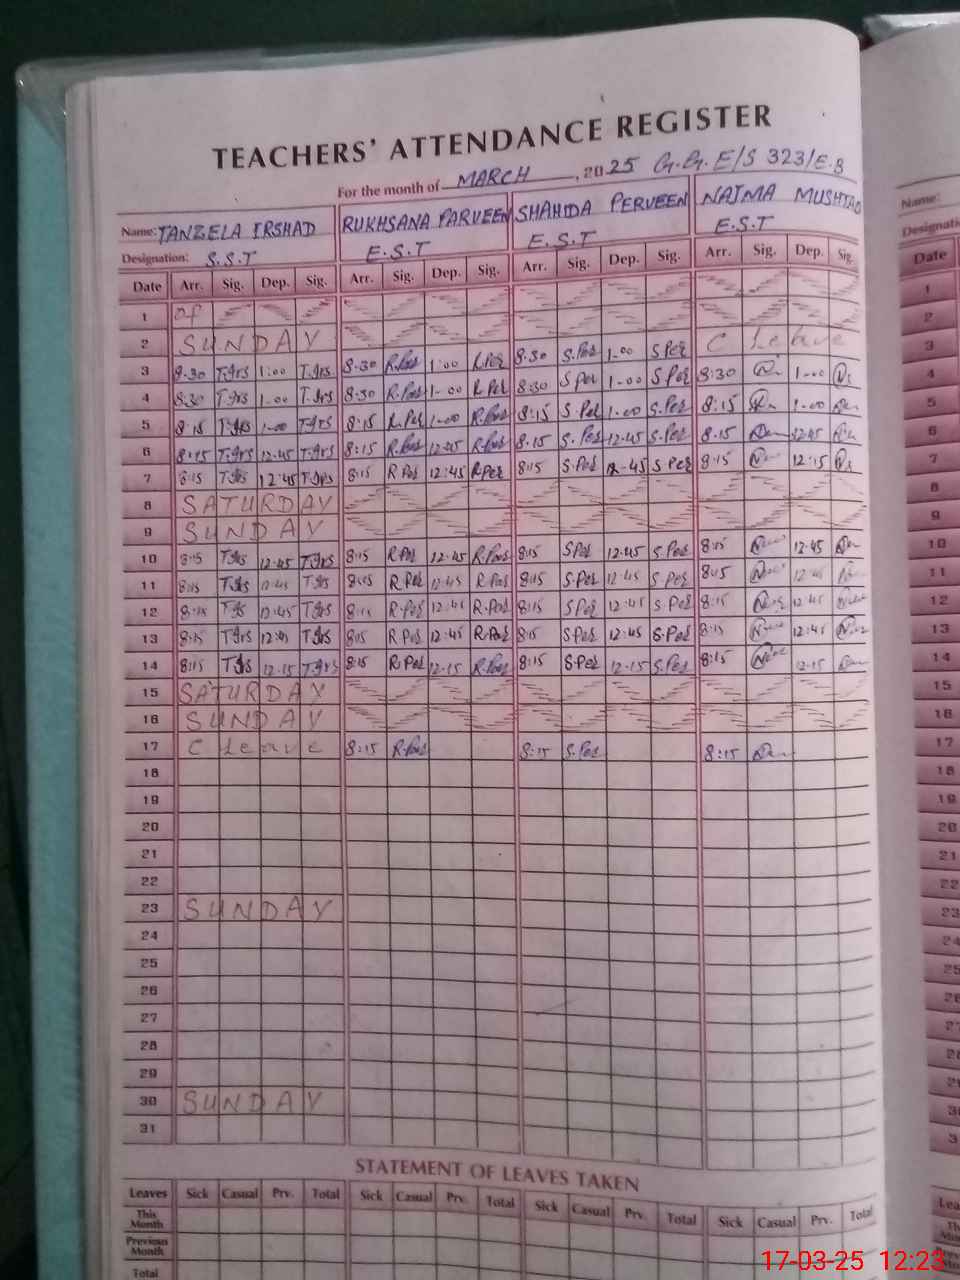 TEACHERS' ATTENDANCE REGISTER
For the month of MARCH, 2025 G.G.E/S 323/E.B
Name: TANZELA IRSHAD RUKHSANA PARVEEN SHAHIDA PERVEEN NAJMA MUSHTAQ
Designation: S.S.T E.S.T E.S.T E.S.T
Date Arr. Sig. Dep. Sig. Arr. Sig. Dep. Sig. Arr. Sig. Dep. Sig. Arr. Sig. Dep. Sig.
1
2 SUNDAY
3 8.30 T.Irs 1:00 T.Irs 8.30 R.Per 1:00 R.Per 8.30 S.Per 1.00 S Per C Leave
4 8.30 T.Irs 1.00 T.Irs 8.30 R.Per 1.00 R.Per 8:30 S Per 1.00 S Per 8:30 1.00
5 8.15 T.Irs 1.00 T.Irs 8.15 R.Per 1.00 R.Per 8:15 S.Per 1.00 S.Per 8:15 1.00
6 8:15 T.Irs 12.45 T.Irs 8:15 R.Per 12.45 R.Per 8.15 S.Per 12.45 S.Per 8.15 12.45
7 8:15 T.Irs 12:45 T.Irs 8:15 R Per 12:45 R.Per 8:15 S.Per 12.45 S Per 8:15 12.15
8 SATURDAY
9 SUNDAY
10 8:15 T.Irs 12.45 T.Irs 8:15 R.Per 12.45 R.Per 8:15 S Per 12.45 S.Per 8:15 12.45
11 8:15 T.Irs 12.45 T.Irs 8:15 R.Per 12:45 R.Per 8:15 S.Per 12.45 S.Per 8:15 12.45
12 8:15 T.Irs 12:45 T.Irs 8:15 R.Per 12:45 R.Per 8:15 S.Per 12.45 S.Per 8:15 12.45
13 8:15 T.Irs 12:45 T.Irs 8:15 R.Per 12:45 R.Per 8:15 S.Per 12:45 S.Per 8:15 12:45
14 8:15 T.Irs 12.15 T.Irs 8:15 R.Per 12.15 R.Per 8:15 S.Per 12.15 S.Per 8:15 12.15
15 SATURDAY
16 SUNDAY
17 C Leave 8:15 R.Per 8:15 S.Per 8:15
18
19
20
21
22
23 SUNDAY
24
25
26
27
28
29
30 SUNDAY
31
STATEMENT OF LEAVES TAKEN
Leaves Sick Casual Prv. Total Sick Casual Prv. Total Sick Casual Prv. Total Sick Casual Prv. Total
This Month
Previous Month
Total
Name:
Date
1
2
3
4
5
6
7
8
9
10
11
12
13
14
15
16
17
18
19
20
21
22
23
17-03-25 12:23